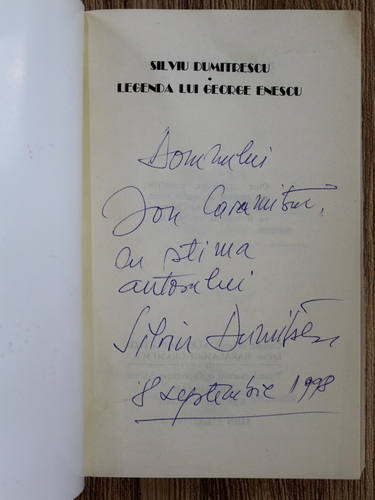 SILVIU DUMITRESCU
•
LEGENDA LUI GEORGE ENESCU
Domnului
Ion Caramitru,
cu stima
autorului
Silviu Dumitrescu
8 septembrie 1998